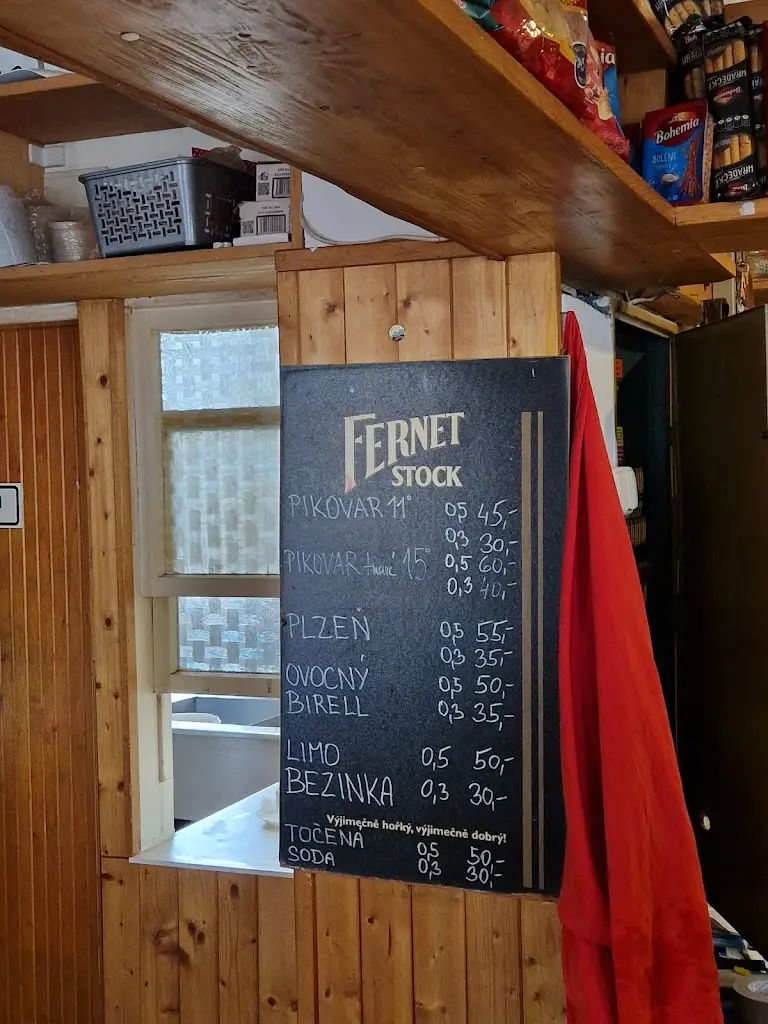 Bohemia
SOLENÉ
HRADECKÉ
FERNET
STOCK
PIKOVAR 11° 0,5 45,-
0,3 30,-
PIKOVAR tmavé 15° 0,5 60,-
0,3 40,-
PLZEŇ 0,5 55,-
0,3 35,-
OVOCNÝ 0,5 50,-
BIRELL 0,3 35,-
LIMO 0,5 50,-
BEZINKA 0,3 30,-
Výjimečně hořký, výjimečně dobrý!
TOČENÁ 0,5 50,-
SODA 0,3 30,-